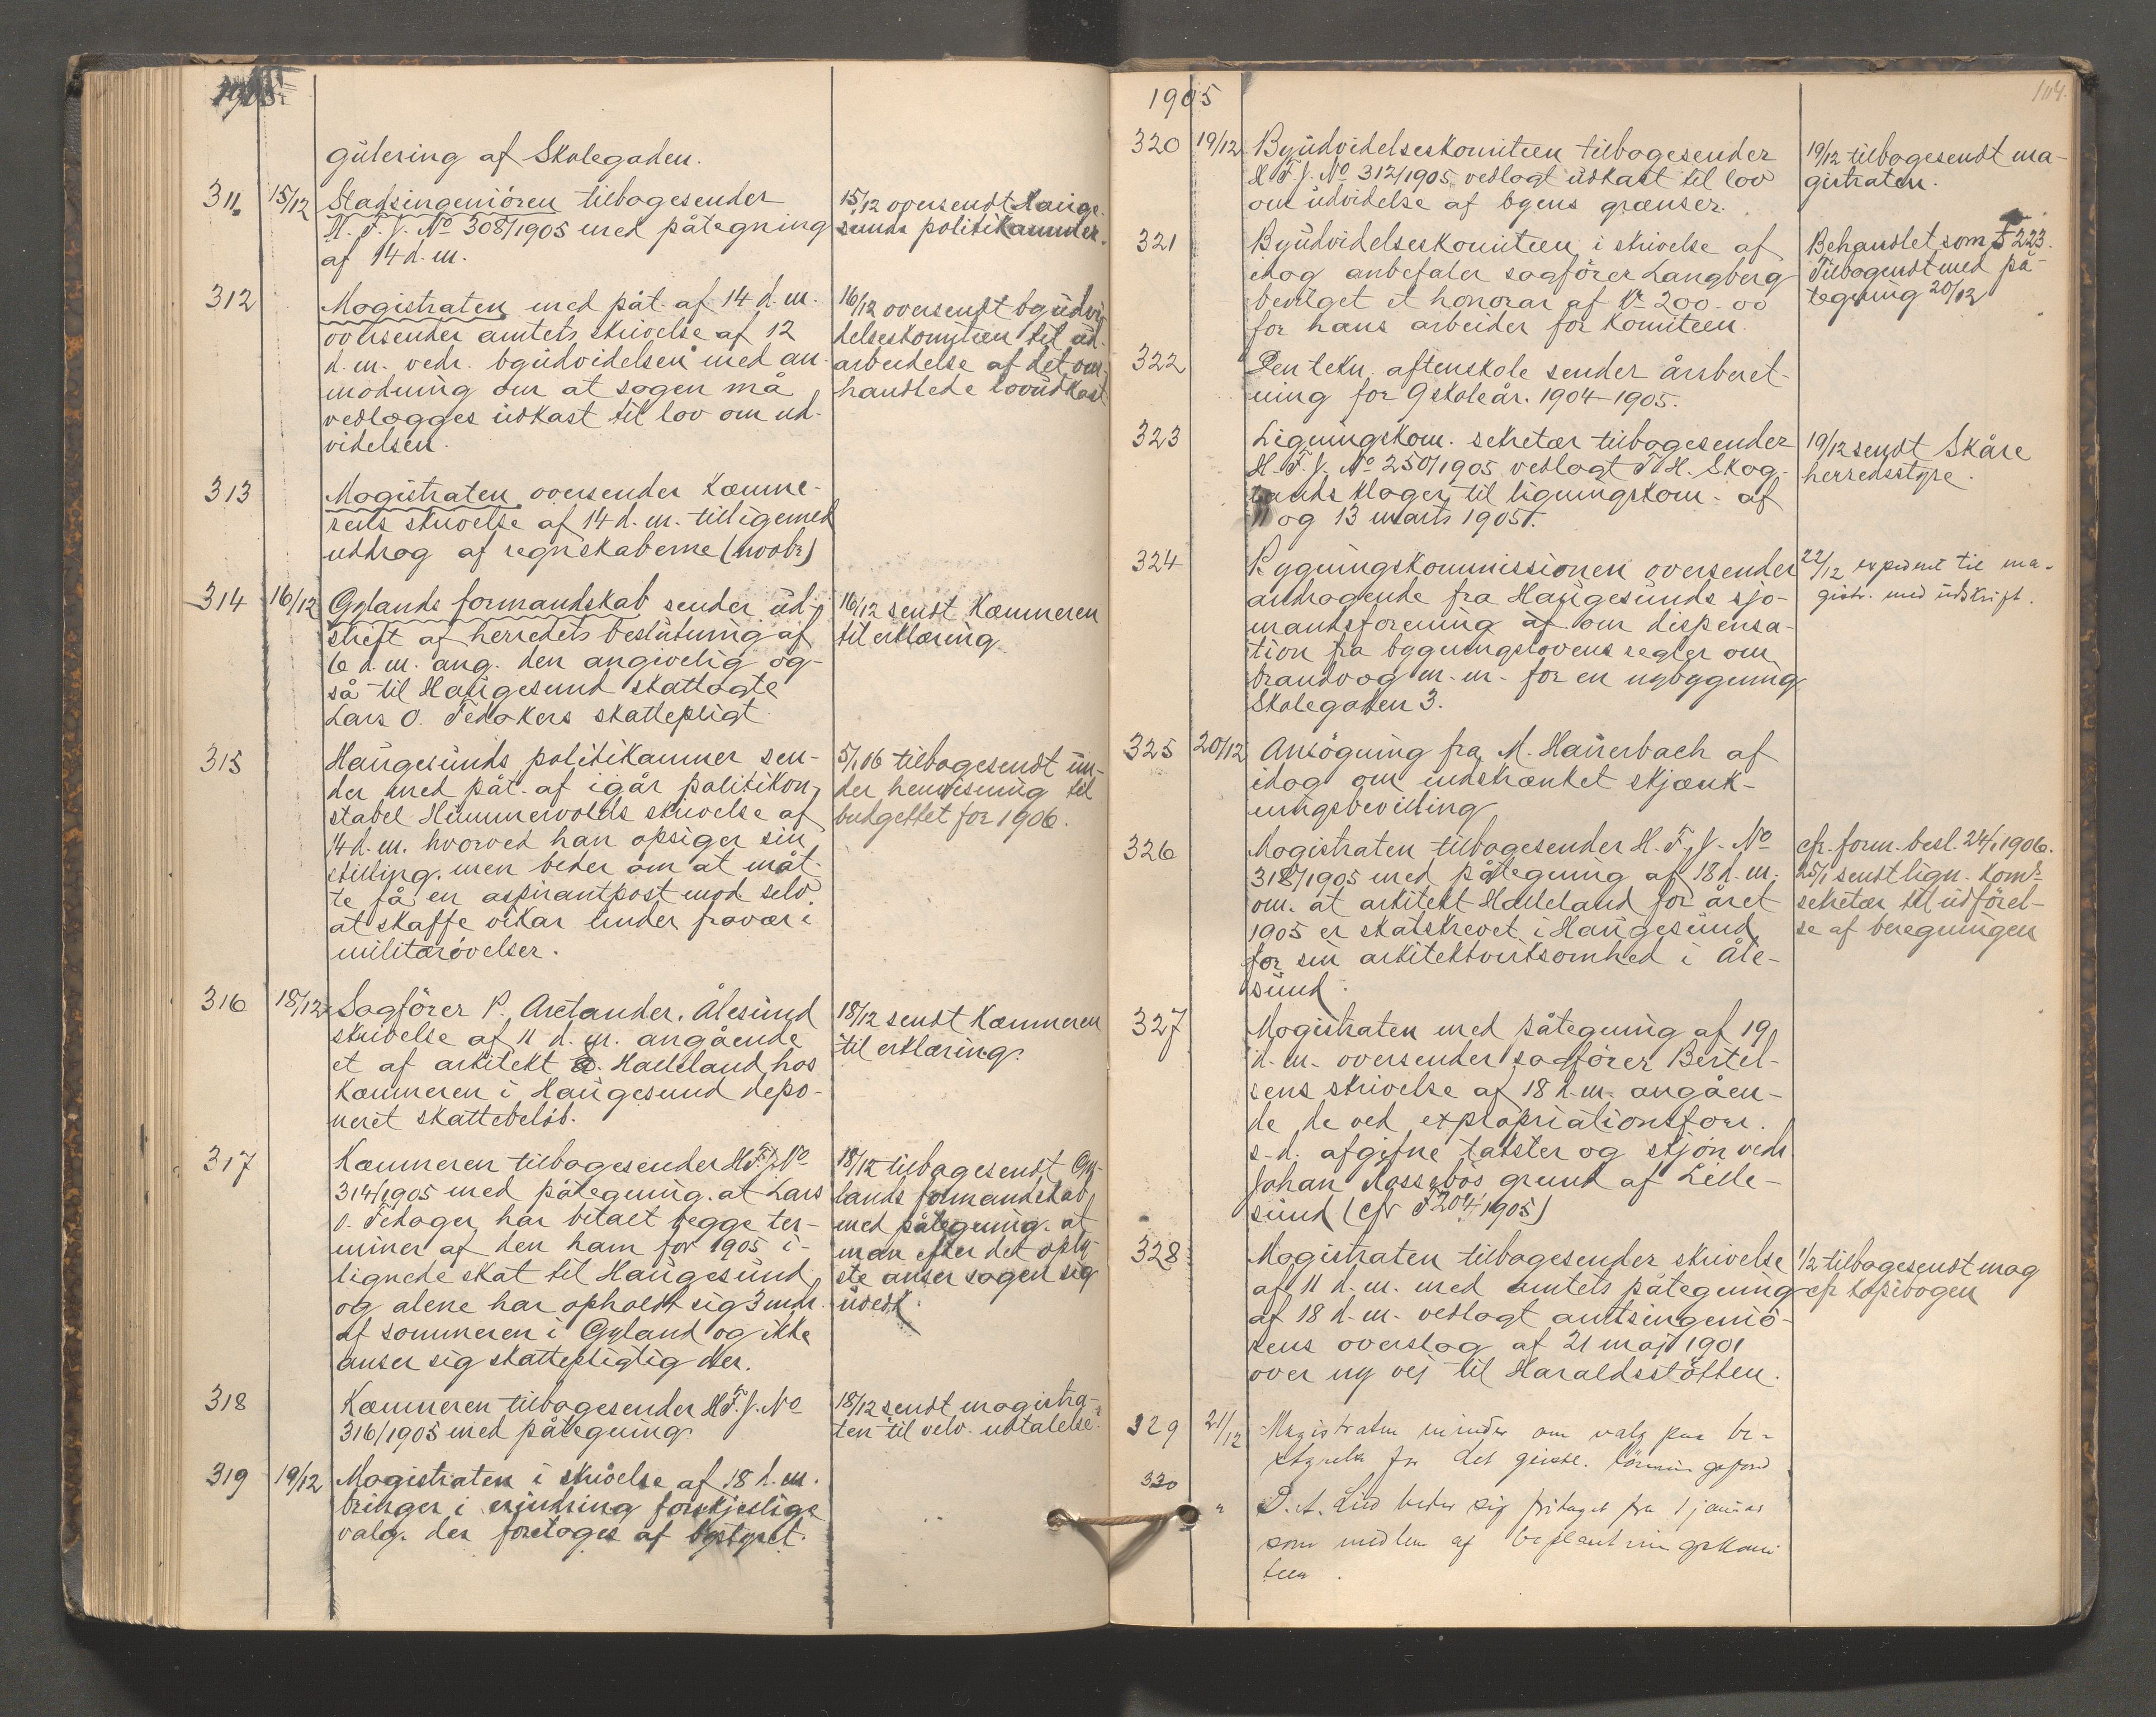 1905
gulering af Skolegaden.
311. 15/12 Stadsingeniören tilbagesender 15/12 oversendt Hauge-
H. F. J. No 308/1905 med påtegning sunds politikammer.
af 14 d. m.
312 Magistraten med påt. af 14 d. m. 16/12 oversendt byudvi-
oversender amtets skrivelse af 12 delseskomiteen til ud-
d. m. vedr. byudvidelsen med an- arbeidelse af det om-
modning om at sagen må handlede lovudkast
vedlægges udkast til lov om ud-
videlsen.
313 Magistraten oversender kæmne-
rens skrivelse af 14 d. m. tilligemed
uddrag af regnskaberne (novbr)
314 16/12 Gylands formandskab sender ud- 16/12 sendt kæmneren
skrift af herredets beslutning af til erklæring.
6 d. m. ang. den angivelig og-
så til Haugesund skatlagte
Lars O. Fedakers skattepligt.
315 Haugesunds politikammer sen- 5/1 06 tilbagesendt un-
der med påt. af igår politikon- der henvisning til
stabel Hummervolds skrivelse af budgettet for 1906.
14 d. m. hvorved han opsiger sin
stilling, men beder om at måt-
te få en aspirantpost mod selv
at skaffe vikar under fravær i
militærövelser.
316 18/12 Sagförer P. Aretander, Ålesund 18/12 sendt kæmneren
skrivelse af 11 d. m. angående til erklæring.
et af arkitekt Halleland hos
kæmneren i Haugesund depo-
neret skattebelöb.
317 Kæmneren tilbagesender H.F.J. No 18/12 tilbagesendt Gy-
314/1905 med påtegning at Lars lands formandskab
O. Fedager har betalt begge ter- med påtegning at
miner af den ham for 1905 i- man efter det oply-
lignede skat til Haugesund ste anser sagen sig
og alene har opholdt sig 3 mdr. uvedk.
af sommeren i Gyland og ikke
anser sig skattepligtig der.
318 Kæmneren tilbagesender H.F.J. No 18/12 sendt magistra-
316/1905 med påtegning ten til velv. udtalelse.
319 19/12 Magistraten i skrivelse af 18 d. m.
bringer i erindring forskjellige
valg, der foretages af bystyret.
104.
1905
320 19/12 Byudvidelseskomiteen tilbagesender 19/12 tilbagesendt ma-
H F. J. No 312/1905 vedlagt udkast til lov gistraten.
om udvidelse af byens grænser.
321 Byudvidelseskomiteen i skrivelse af Behandlet som F 223.
idag anbefaler sagförer Langberg Tilbagendt med på-
bevilget et honorar af Kr 200.00 tegning 20/12
for hans arbeider for komiteen.
322 Den tekn. aftenskole sender årsberet-
ning for 9 skoleår. 1904-1905.
323 Ligningskom. sekretær tilbagesender 19/12 sendt Skåre
H. F. J. No 250/1905 vedlagt T. H. Skog- herredsstyre.
lands klager til ligningskom. af
11 og 13 marts 1905.
324 Bygningskommissionen oversender 22/12 exped til ma-
andragende fra Haugesunds sjö- gistr. med udskrift.
mandsforening af om dispensa-
tion fra bygningslovens regler om
brandvæg m. m. for en nybygning
Skolegaden 3.
325 20/12 Ansögning fra M. Hauerbach af
idag om indskrænket skjænk-
ningsbevilling
326 Magistraten tilbagesender H. F. J. No cfr. form. besl. 24/1 1906.
318/1905 med påtegning af 18 d. m. 25/1 sendt lign. koms
om at arkitekt Halleland for året sekretær til udförel-
1905 er skatskrevet i Haugesund se af beregningen
for sin arkitektvirksomhed i Åle-
sund.
327 Magistraten med påtegning af 19
d. m. oversender sagförer Bertel-
sens skrivelse af 18 d. m. angåen-
de de ved expropriationsforr.
s. d. afgifne takster og skjön vedr.
Johan Rossebös grund af Lille-
sund (cfr F 204/1905)
328 Magistraten tilbagesender skrivelse 1/2 tilbagesendt mag
af 11 d. m. med amtets påtegning cfr kopibogen
af 18 d. m. vedlagt amtsingeniö-
rens overslag af 21 maj 1901
over ny vej til Haraldsstötten.
329 21/12 Magistraten minder om valg paa be-
styrelse for det geistl.
330 " P. A. Lie beder sig fritaget fra 1 januar
som medlem af beplantningskomi
teen.